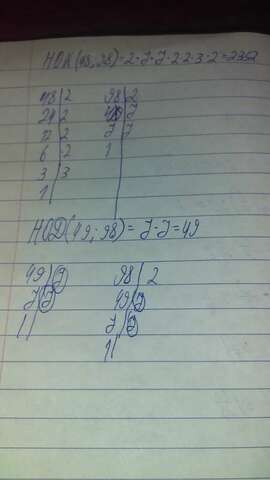 НОК(48;98)=2·7·7·2·2·3·2=2352
48|2 98|2
24|2 49|7
12|2 7|7
6|2 1|
3|3
1|
НОД(49;98)=7·7=49
49|7 98|2
7|7 49|7
1| 7|7
1|